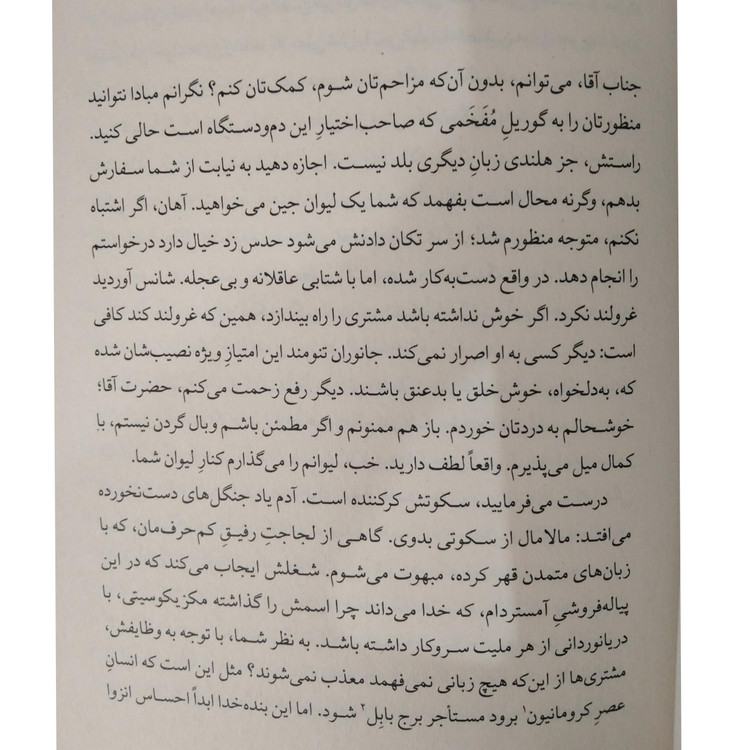 جناب آقا، می‌توانم، بدون آن‌که مزاحم‌تان شوم، کمک‌تان کنم؟ نگرانم مبادا نتوانید
منظورتان را به گوریلِ مُفَخَمی که صاحب‌اختیارِ این دم‌ودستگاه است حالی کنید.
راستش، جز هلندی زبانِ دیگری بلد نیست. اجازه دهید به نیابت از شما سفارش
بدهم، وگرنه محال است بفهمد که شما یک لیوان جین می‌خواهید. آهان، اگر اشتباه
نکنم، متوجه منظورم شد؛ از سر تکان دادنش می‌شود حدس زد خیال دارد درخواستم
را انجام دهد. در واقع دست‌به‌کار شده، اما با شتابی عاقلانه و بی‌عجله. شانس آوردید
غرولند نکرد. اگر خوش نداشته باشد مشتری را راه بیندازد، همین که غرولند کند کافی
است: دیگر کسی به او اصرار نمی‌کند. جانوران تنومند این امتیازِ ویژه نصیب‌شان شده
که، به‌دلخواه، خوش‌خلق یا بدعنق باشند. دیگر رفع زحمت می‌کنم، حضرت آقا؛
خوشحالم به دردتان خوردم. باز هم ممنونم و اگر مطمئن باشم وبال گردن نیستم، با
کمال میل می‌پذیرم. واقعاً لطف دارید. خب، لیوانم را می‌گذارم کنارِ لیوان شما.
درست می‌فرمایید، سکوتش کرکننده است. آدم یاد جنگل‌های دست‌نخورده
می‌افتد: مالامال از سکوتی بدوی. گاهی از لجاجتِ رفیقِ کم‌حرف‌مان، که با
زبان‌های متمدن قهر کرده، مبهوت می‌شوم. شغلش ایجاب می‌کند که در این
پیاله‌فروشیِ آمستردام، که خدا می‌داند چرا اسمش را گذاشته مکزیکوسیتی، با
دریانوردانی از هر ملیت سروکار داشته باشد. به نظر شما، با توجه به وظایفش،
مشتری‌ها از این‌که هیچ زبانی نمی‌فهمد معذب نمی‌شوند؟ مثل این است که انسانِ
عصرِ کرومانیون۱ برود مستأجر برج بابِل۲ شود. اما این بنده‌خدا ابداً احساس انزوا